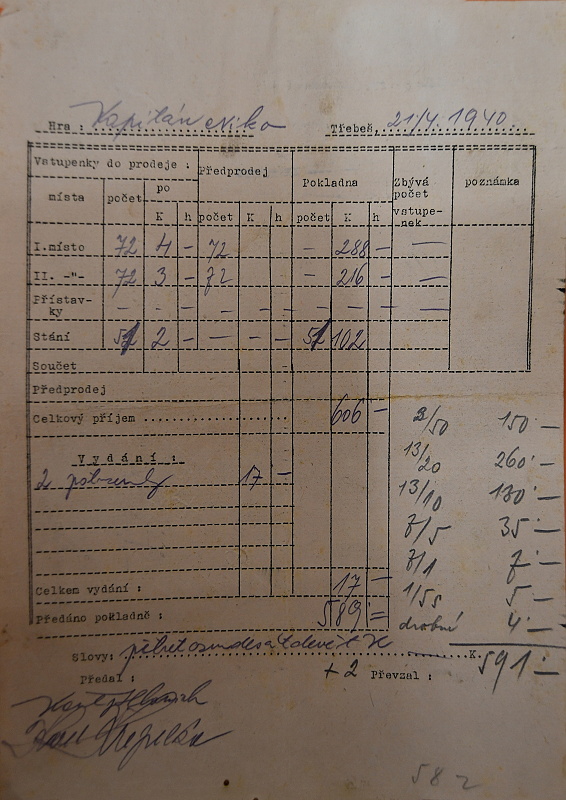 Hra : Kapitán Niko Třebeš, 21/4. 1940.
Vstupenky do prodeje : Předprodej Pokladna Zbývá počet vstupe-nek poznámka
místa počet po K h počet K h počet K h
I.místo 72 4 - 72 - 288 - -
II. -"- 72 3 - 72 - 216 - -
Přístav-ky - - - - - - - - - -
Stání 51 2 - - - - 51 102
Součet
Předprodej
Celkový příjem ................ 606 - 3/50 150 -
13/20 260 -
Vydání :
2 17 - 13/10 130 -
7/5 35 -
7/1 7 -
Celkem vydání : 17 - 1/5 5 -
Předáno pokladně : 589 = drobné 4 -
Slovy: pětsetosmdesátdevět K K. 591 -
Předal : + 2 Převzal :
58